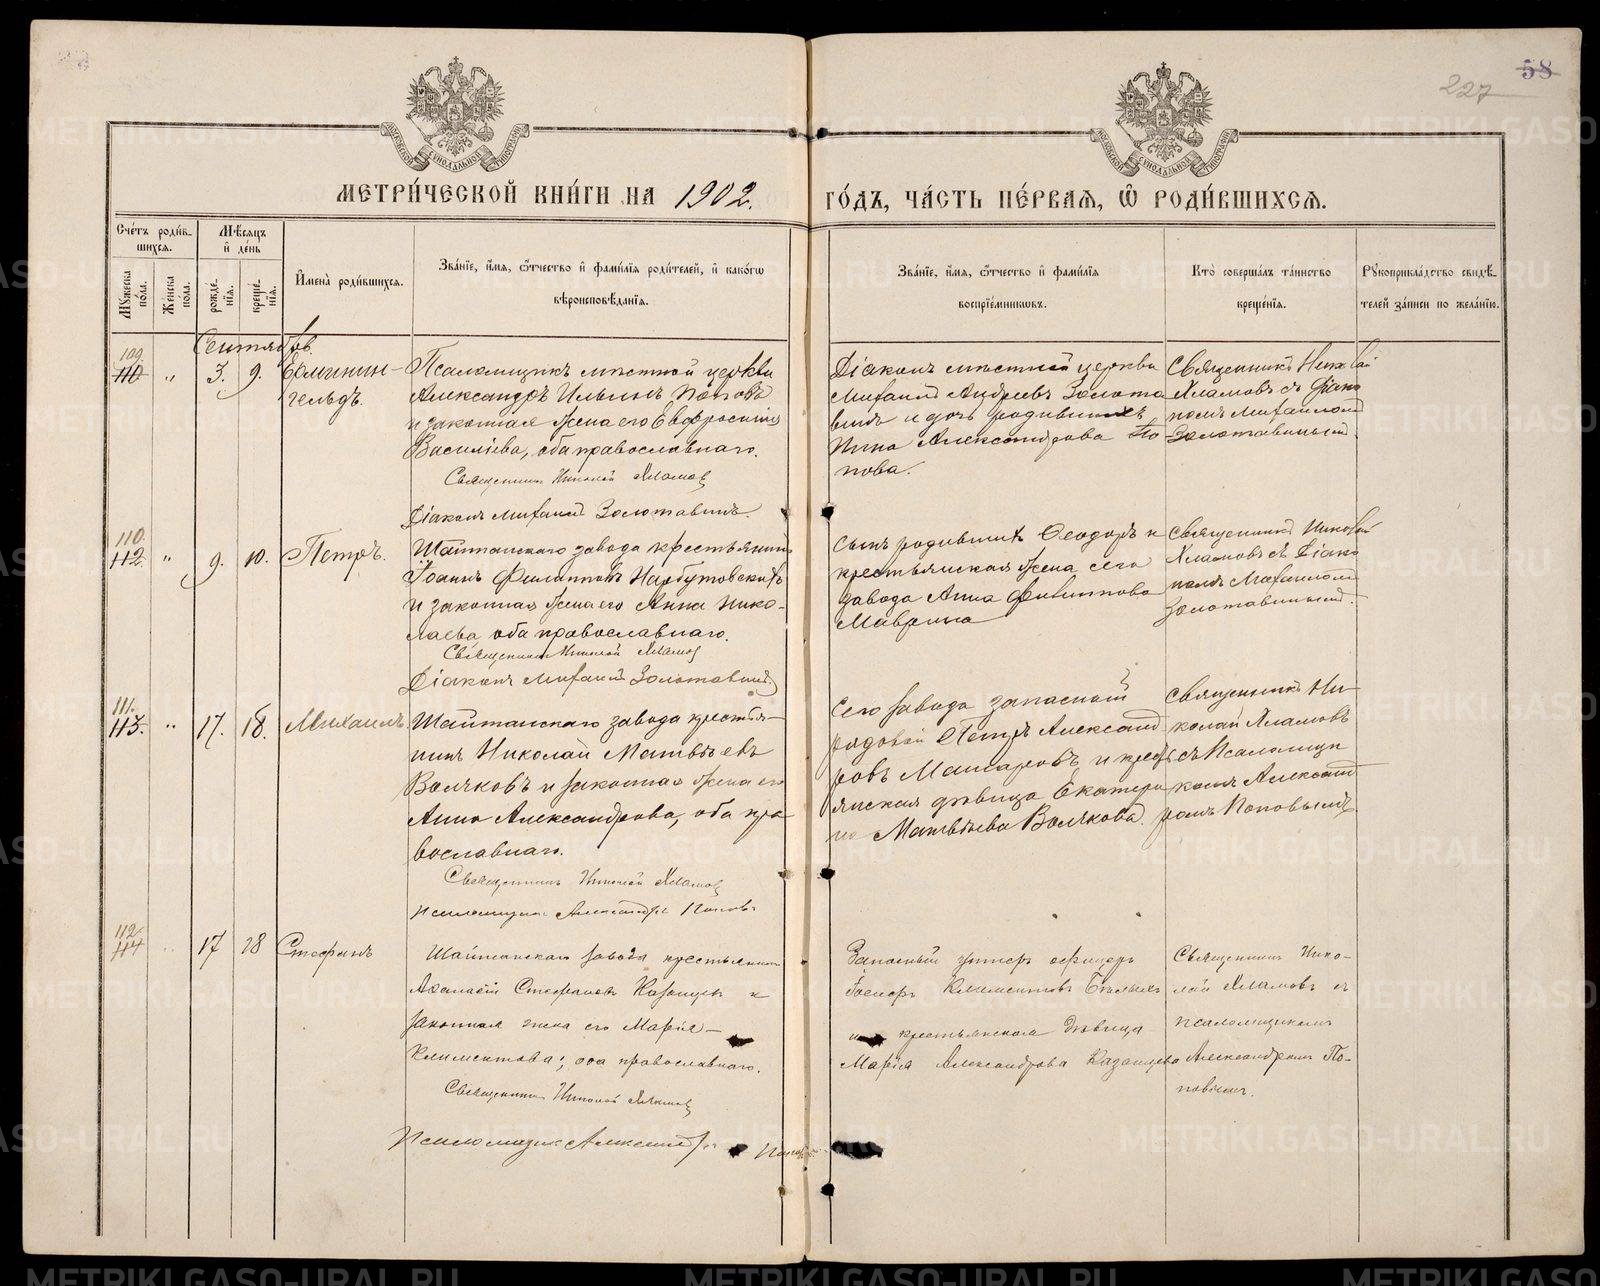 58
227
МЕТРИ́ЧЕСКОЙ КНИ́ГИ НА 1902. ГО́ДЪ, ЧА́СТЬ ПЕ́РВАЯ, Ѡ҆ РОДИ́ВШИХСЯ.
Сче́тъ роди́в-
шихся.
Мꙋжеска по́ла.
Же́нска по́ла.
Мѣ́сяцъ
и҆ де́нь
рожде́-
нїя.
креще́-
нїя.
И҆мена̀ роди́вшихся.
Зва́нїе, и҆́мя, ѻ҆́тчество и҆ фамилїя роди́телей, и҆ како́гѡ
вѣроисповѣ́данїя.
Зва́нїе, и҆́мя, ѻ҆́тчество и҆ фамилїя
воспрїе́мниковъ.
Кто̀ соверша́лъ та́инство
креще́нїя.
Рꙋкоприкла́дство свидѣ́-
телей за́писи по жела́нїю.
Сентябрь.
109.
110 " 3. 9. Ерминин-
гельдъ.
Псаломщикъ мѣстной церкви
Александръ Ильинъ Поповъ
и законная жена его Евфросинія
Васильева, оба православнаго.
Священникъ Николай Хламов
Діаконъ Михаилъ Золотавинъ.
Діаконъ мѣстной церкви
Михаилъ Андреевъ Золота
винъ и дочь родившихъ
Нина Александрова По
пова.
Священникъ Николай
Хламовъ съ Діако
номъ Михаиломъ
Золотавинымъ.
110.
112. " 9. 10. Петръ.
Шайтанскаго завода крестьянинъ
Іоаннъ Филипповъ Нарбутовскихъ
и законная жена его Анна Нико-
лаева, оба православнаго.
Священникъ Николай Хламов
Діаконъ Михаилъ Золотавинъ
Сынъ родившихъ Ѳеодоръ и
крестьянская жена сего
завода Анна Филиппова
Маврина
Священникъ Николай
Хламовъ съ Діако
номъ Михаиломъ
Золотавинымъ.
111.
113. " 17. 18. Михаилъ
Шайтанскаго завода крестья-
нинъ Николай Матвѣевъ
Волковъ и законная жена его
Анна Александрова, оба пра-
вославнаго.
Священникъ Николай Хламов
Псаломщикъ Александръ Поповъ
Сего завода запасный
рядовой Петръ Александ
ровъ Макаровъ и кресть
янская дѣвица Екатери
на Матвѣева Волкова.
Священникъ Ни-
колай Хламовъ
съ Псаломщи
комъ Александ
ромъ Поповымъ
112.
114 " 17 18 Стефанъ
Шайтанскаго завода крестьянинъ
Аѳанасій Стефановъ Казанцевъ и
законная жена его Марія
Климентова; оба православнаго.
Священникъ Николай Хламов
Псаломщикъ Александръ Поповъ
Запасный унтеръ офицеръ
Климентовъ Бѣлыхъ
и крестьянская дѣвица
Марія Александрова Казанцева
Священникъ Нико-
лай Хламовъ съ
псаломщикомъ
Александромъ По-
повымъ.
METRIKI.GASO-URAL.RU